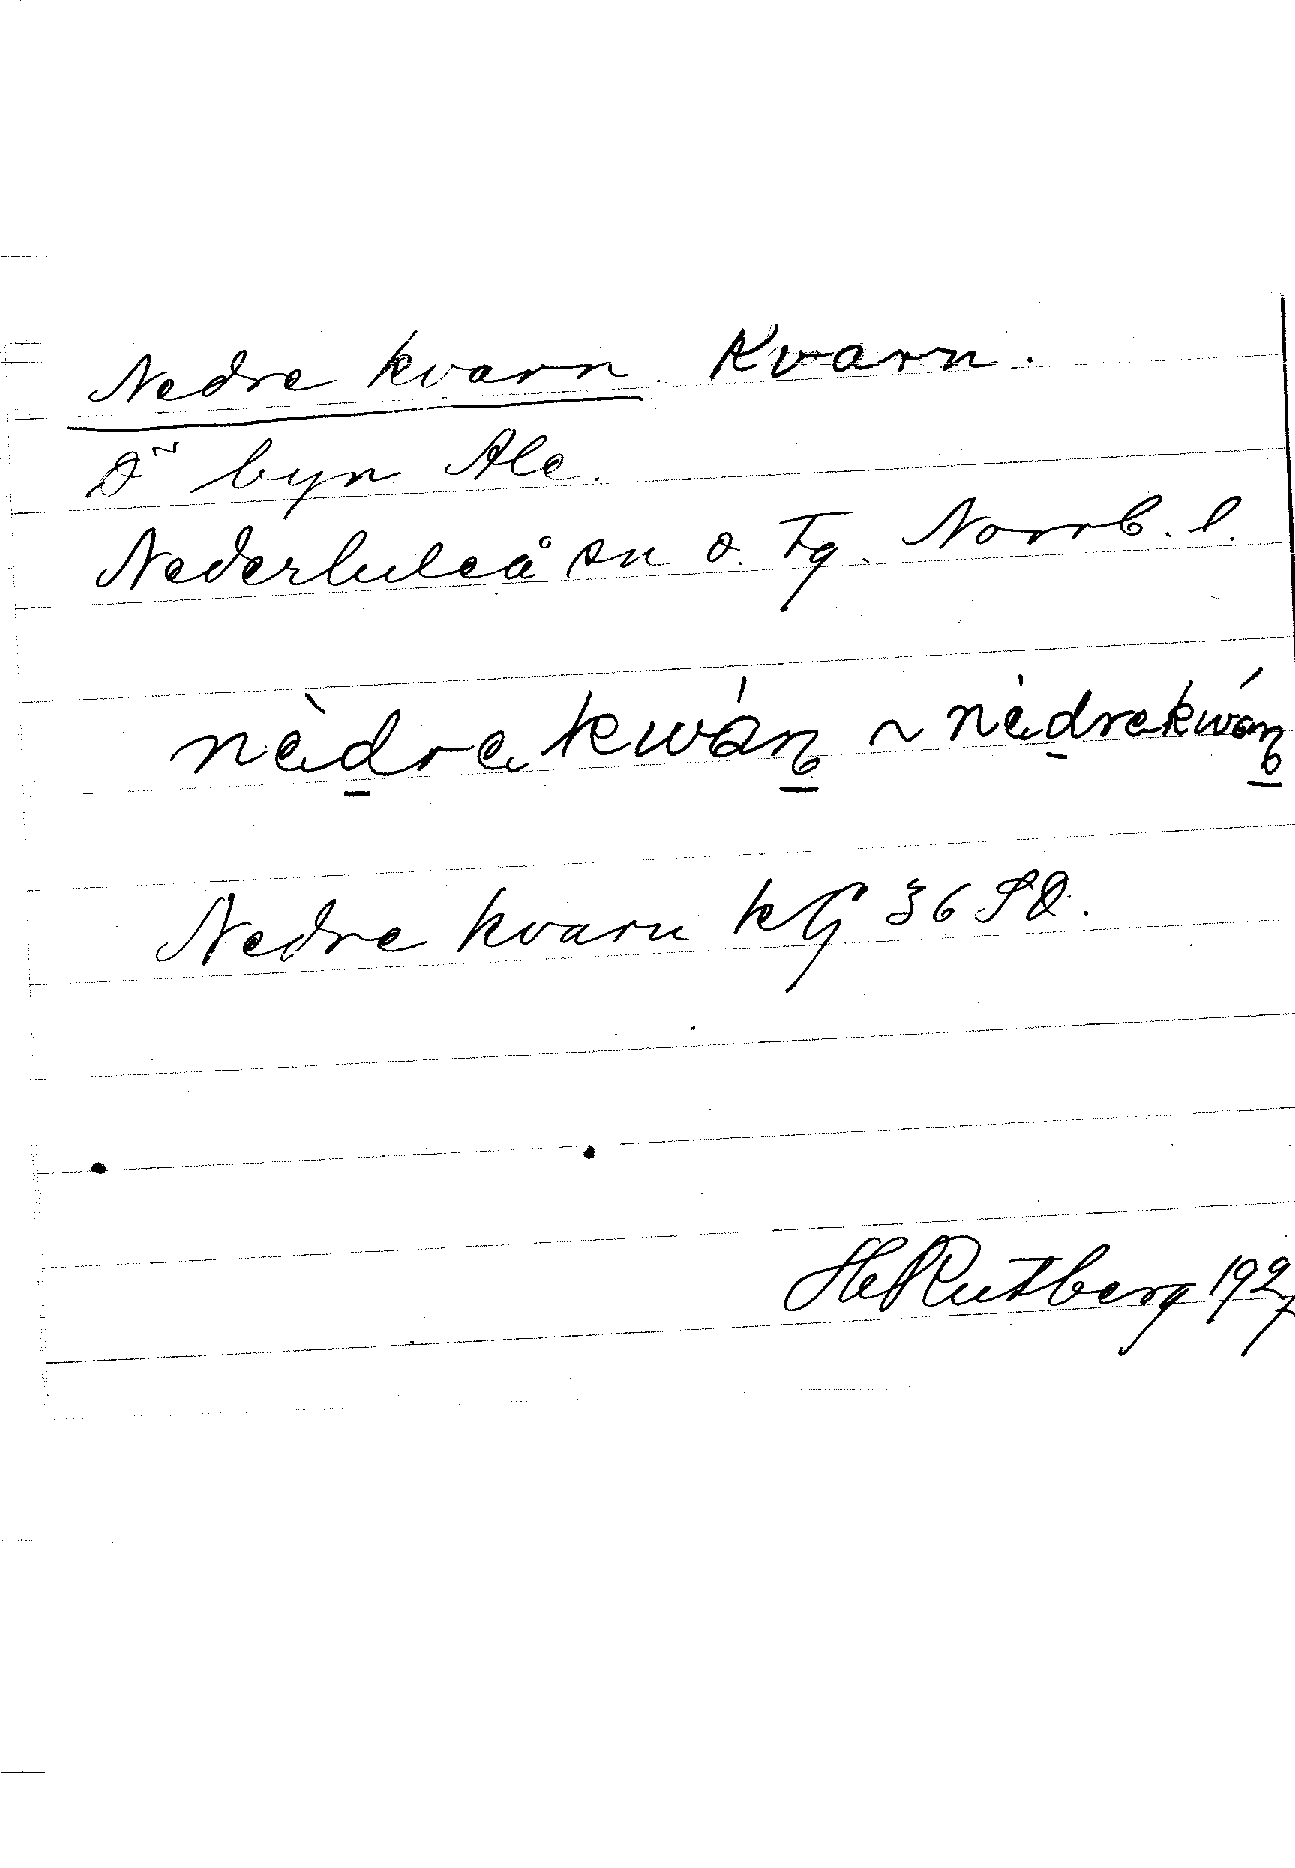 Nedre kvarn Kvarn.
I byn Ale.
Nederluleå sn o. Tg. Norrb. l.
nèdrakwáṇ ~ nèdrekwáṇ
Nedre kvarn kG 36 SO.
HeRutberg 1927